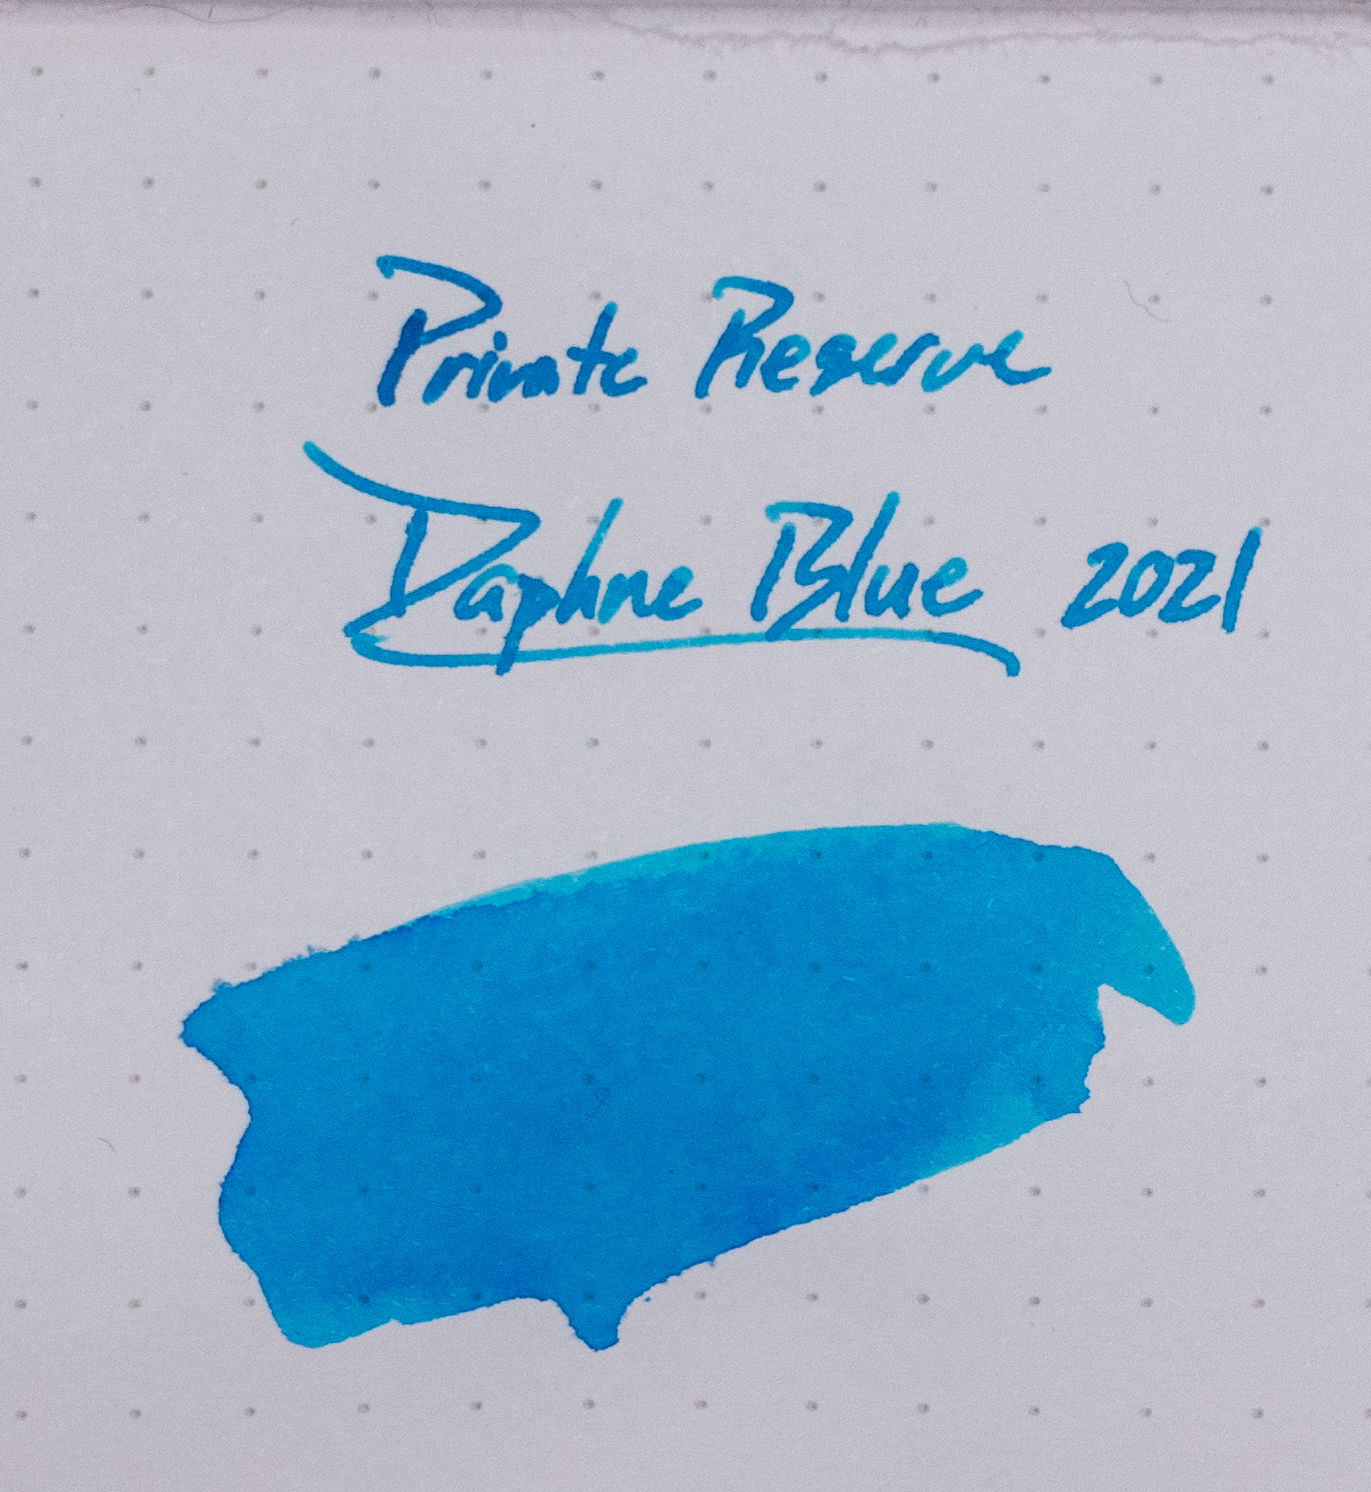 Private Reserve
Daphne Blue 2021